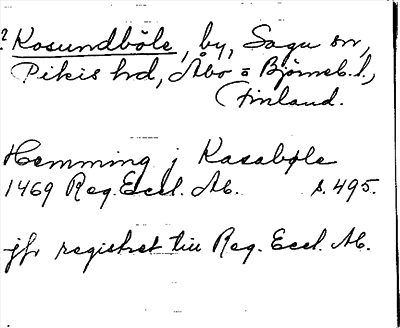 ? Kosundböle, by, Sagu sn,
Pikis hd, Åbo = Björneb. l.,
Finland.
Hemming j Kasabøle
1469 Reg. Eccl. Ab. s. 495.
jfr registret till Reg. Eccl. Ab.